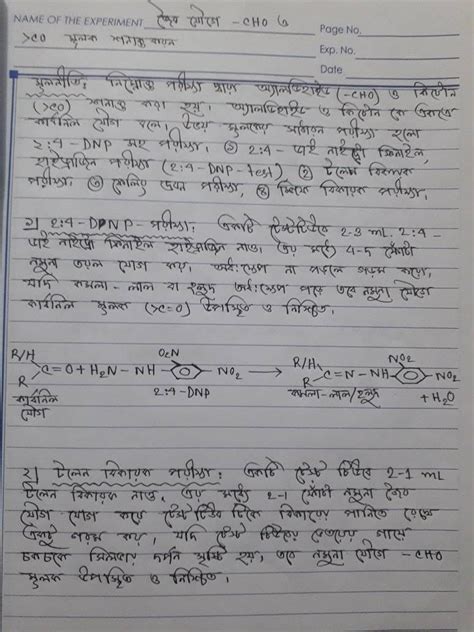 NAME OF THE EXPERIMENT জৈব যৌগে -CHO ও
Page No.
>CO মূলক শনাক্ত করন
Exp. No.
Date
মূলনীতি: নিম্নোক্ত পরীক্ষা দ্বারা অ্যালডিহাইড (-CHO) ও কিটোন
(>CO) শনাক্ত করা হয়। অ্যালডিহাইড ও কিটোন কে একত্রে
কার্বনিল যৌগ বলে। উভয় মূলকের সাধারন পরীক্ষা হলো
2:4-DNP সহ পরীক্ষা। ① 2:4- ডাই নাইট্রো ফিনাইল
হাইড্রাজিন পরীক্ষা (2:4-DNP-test) ② টলেন বিকারক
পরীক্ষা, ③ ফেলিং দ্রবন পরীক্ষা, ④ শিফ বিকারক পরীক্ষা।
১) 2:4-DPNP-পরীক্ষা: একটি টেস্টটিউবে 2-3 mL 2:4-
ডাই নাইট্রো ফিনাইল হাইড্রাজিন নাও, এর মধ্যে 4-5 ফোঁটা
নমুনা তরল যোগ কর, অধঃক্ষেপ না পড়লে গরম করো,
যদি কমলা-লাল বা হলুদ অধঃক্ষেপ পড়ে তবে নমুনা যৌগে
কার্বনিল মূলক (>C=O) উপস্থিত ও নিশ্চিত।
R/H
R
C=O + H₂N-NH-
O₂N
-NO₂
→
R/H
R
C=N-NH-
NO₂
-NO₂
কার্বনিল
যৌগ
2:4-DNP
কমলা-লাল/হলুদ
+H₂O
২) টলেন বিকারক পরীক্ষা: একটি টেস্ট টিউবে 2-1 mL
টলেন বিকারক নাও, এর মধ্যে 2-1 ফোঁটা নমুনা জৈব
যৌগ যোগ করে টেস্টটিউব টিকে বিকারের পানিতে রেখে
একটু গরম কর, যদি টেস্ট টিউবের ভেতরের গায়ে
চকচকে সিলভার দর্পন সৃষ্টি হয়, তবে নমুনা যৌগে -CHO
মূলক উপস্থিত ও নিশ্চিত।